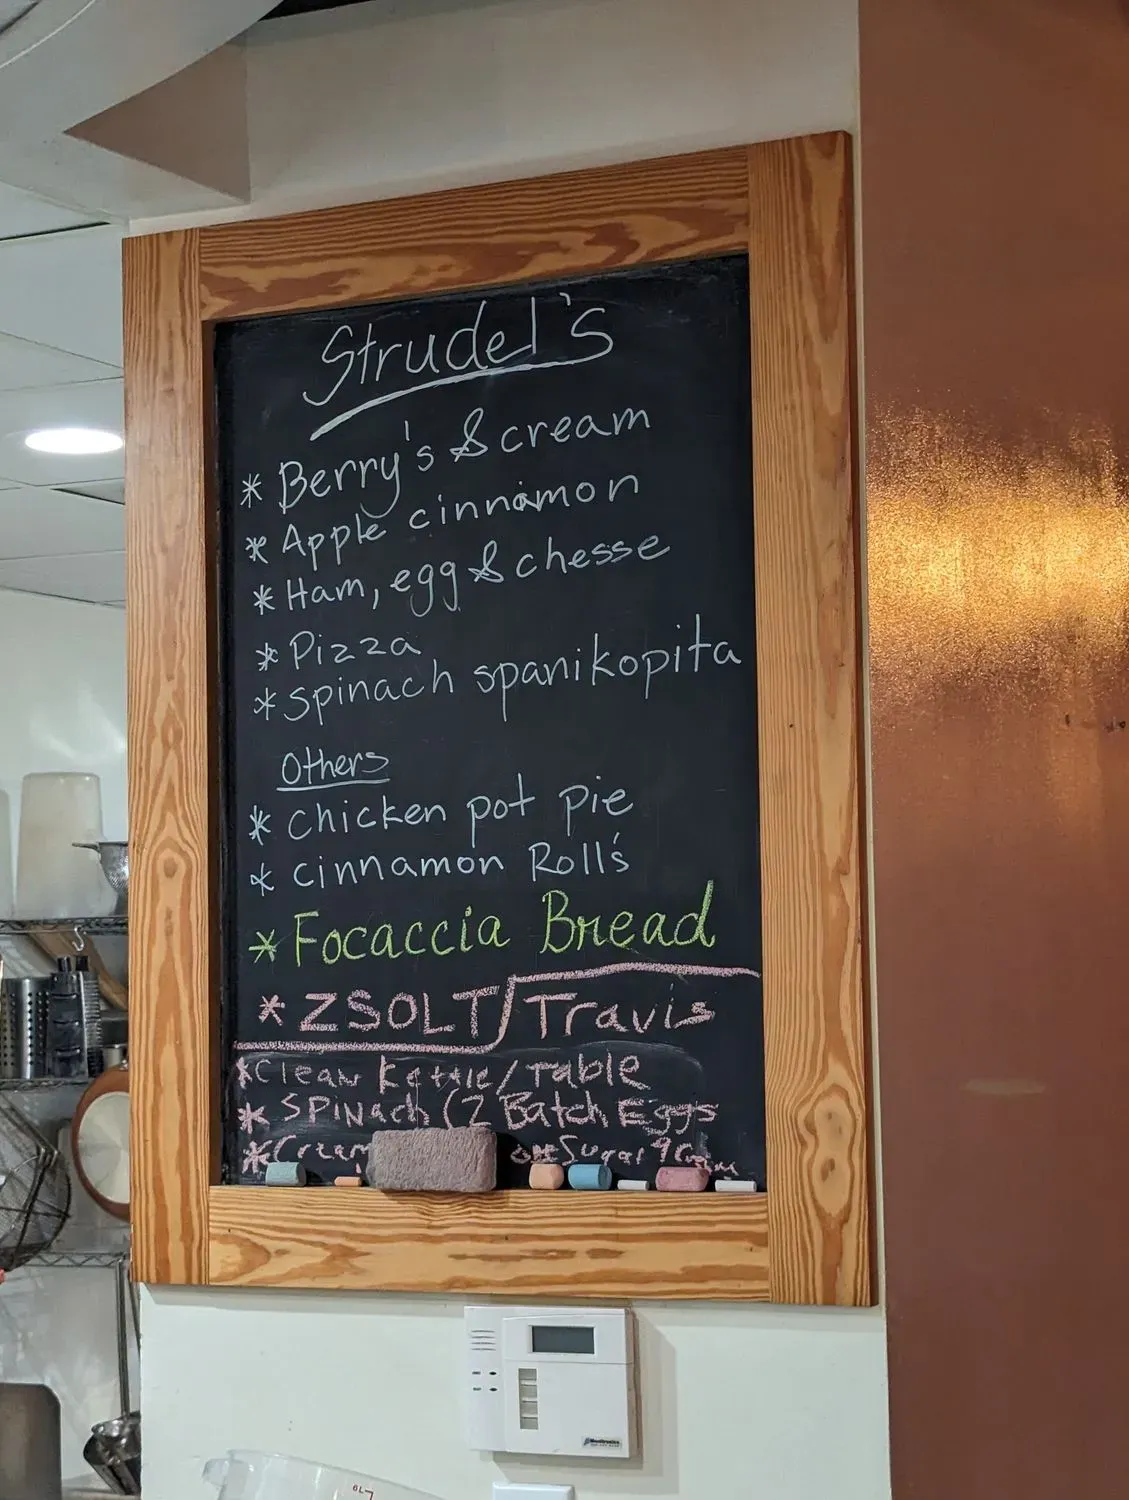 Strudel's
* Berry's & cream
* Apple cinnamon
* Ham, egg & chesse
* Pizza
* Spinach spanikopita
Others
* Chicken pot pie
* Cinnamon Roll's
* Focaccia Bread
* ZSOLT/Travis
*Clean Kettle/Table
* SPINach (2 Batch Eggs
*Cream Sugar